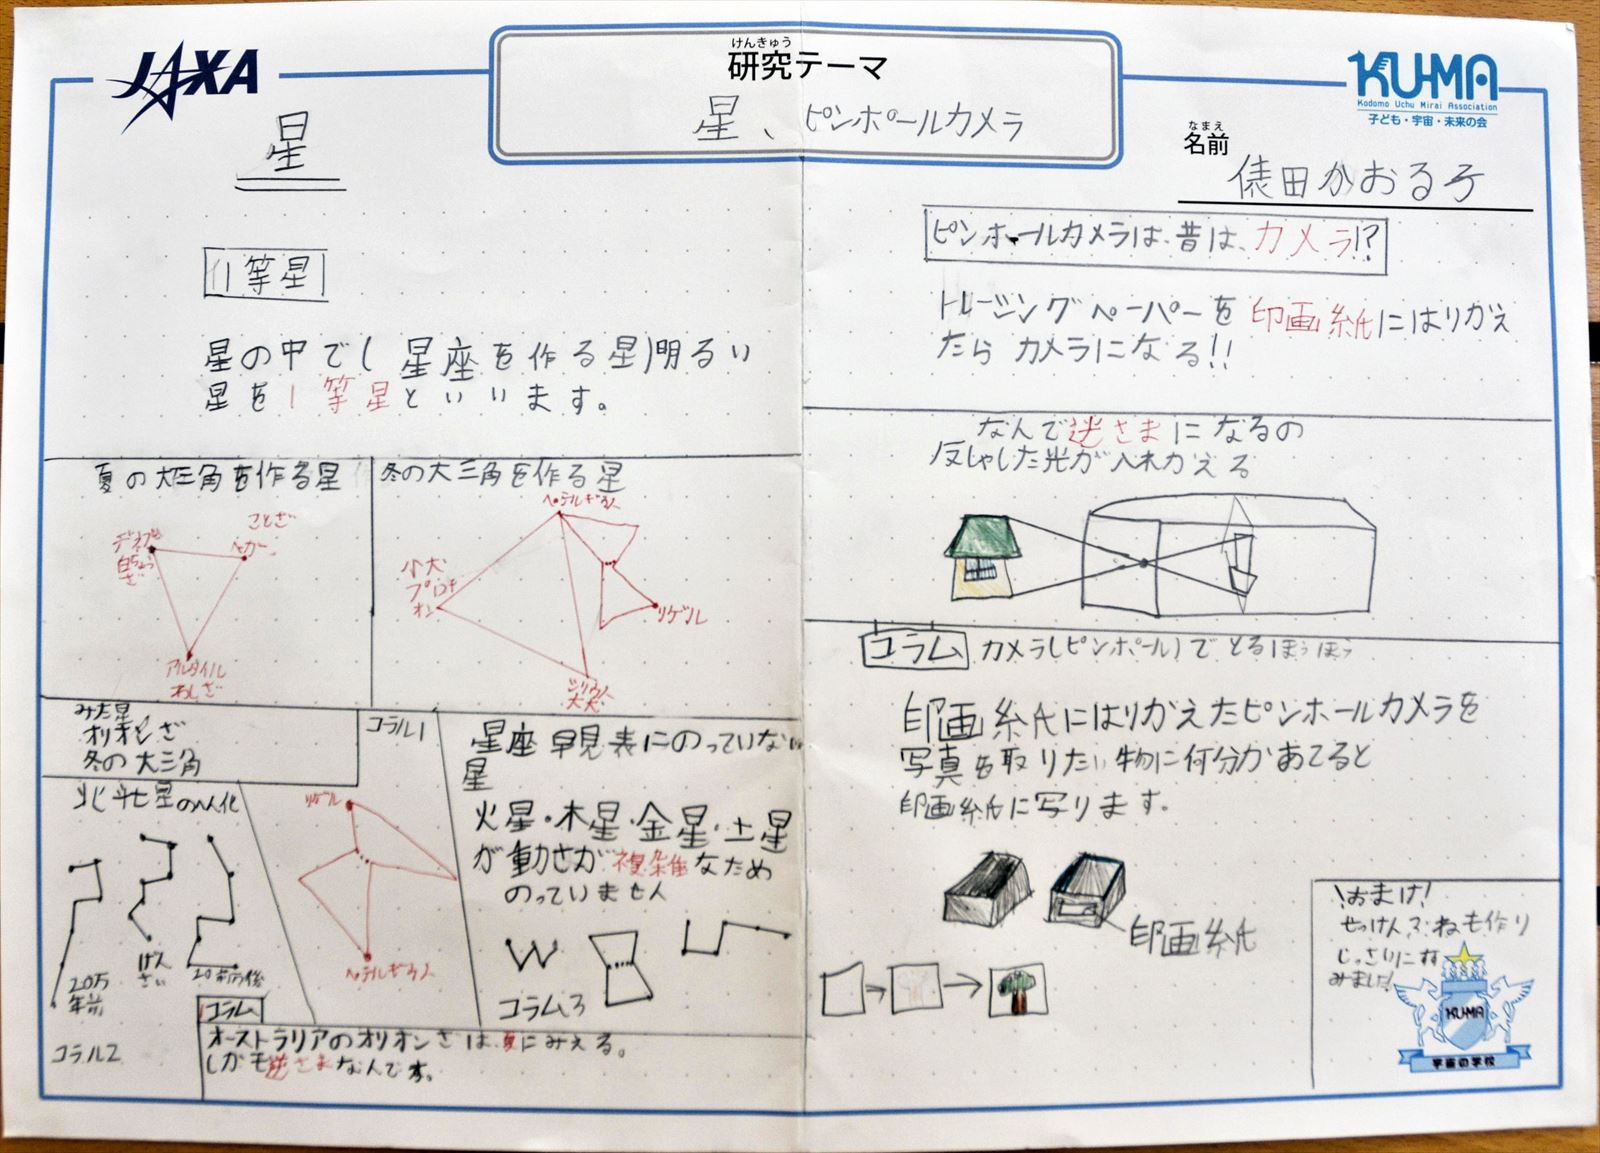 JAXA
けんきゅう
研究テーマ
星、ピンホールカメラ
KUMA
Kodomo Uchu Mirai Association
子ども・宇宙・未来の会
なまえ
名前
俵田かおる子
星
1等星
星の中で(星座を作る星)明るい
星を1等星といいます。
夏の大三角を作る星
デネブ
白ちょう
ざ
ことざ
ベガ
アルタイル
わしざ
冬の大三角を作る星
ベテルギウス
小犬
プロキ
オン
リゲル
シリウス
大犬
みた星
オリオンざ
冬の大三角
コラム1
リゲル
ベテルギウス
北斗七星の変化
20万
年前
げん
ざい
20万年後
コラム2
星座早見表にのっていない
星
火星・木星・金星・土星
が動きが複雑なため
のっていません
コラム3
コラム
オーストラリアのオリオンざは、夏にみえる。
しかも逆さまなんです。
ピンホールカメラは、昔は、カメラ!?
トレーシングペーパーを印画紙にはりかえ
たらカメラになる!!
なんで逆さまになるの
反しゃした光が入れかえる
コラム カメラ(ピンホール)でとるほうほう
印画紙にはりかえたピンホールカメラを
写真を取りたい物に何分かあてると
印画紙に写ります。
印画紙
おまけ!
せっけんぶねも作り
じっさいにすす
みました!
KUMA
宇宙の学校